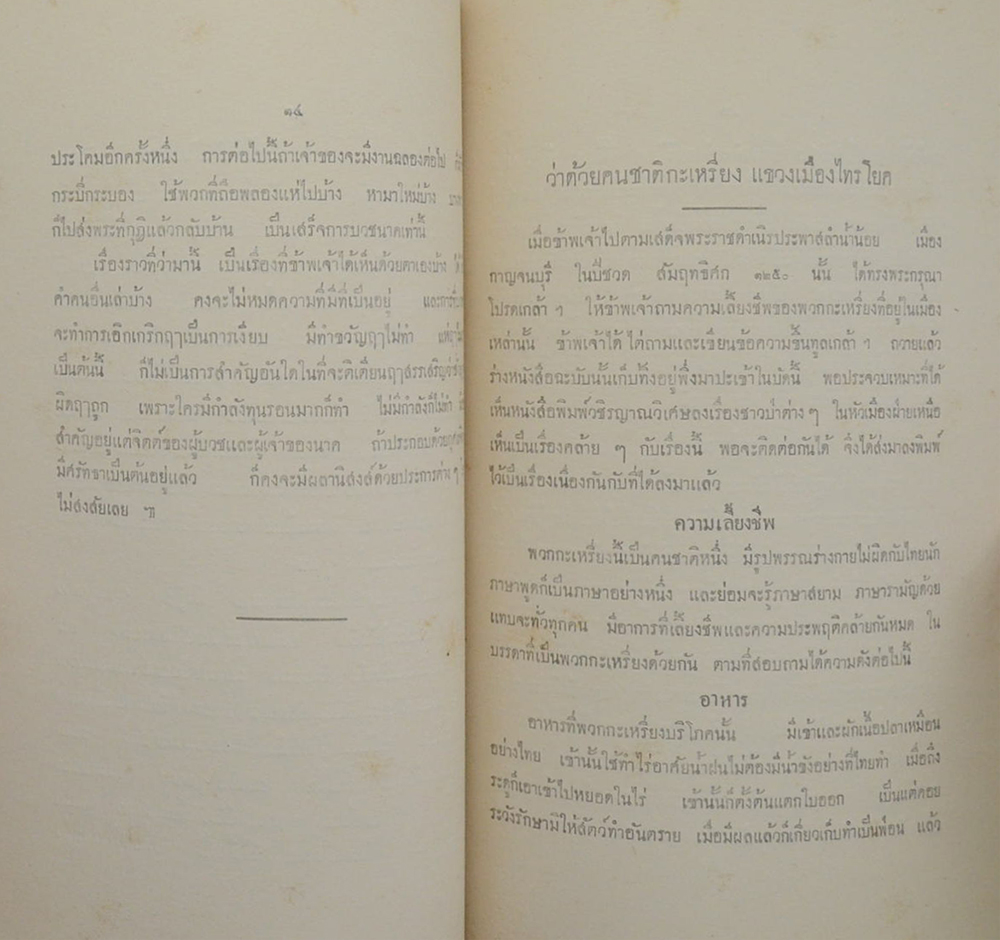 ๑๔
ประโคมอีกครั้งหนึ่ง การต่อไปนี้ถ้าเจ้าของจะมีงานฉลองต่อไป
กระบี่กระบอง ใช้พวกที่ถือพลองแห่ไปบ้าง หามาใหม่บ้าง
ก็ไปส่งพระที่กุฏิแล้วกลับบ้าน เป็นเสร็จการบวชนาคเท่านี้
เรื่องราวที่ว่ามานี้ เป็นเรื่องที่ข้าพเจ้าได้เห็นด้วยตาเองบ้าง
คำคนอื่นเล่าบ้าง คงจะไม่หมดความที่มีที่เป็นอยู่
จะทำการเอิกเกริกฤๅเป็นการเงียบ มีทำขวัญฤๅไม่ทำ
เป็นต้นนี้ ก็ไม่เป็นการสำคัญอันใดในที่จะติเตียนฤๅสรรเสริญ
ผิดฤๅถูก เพราะใครมีกำลังทุนรอนมากก็ทำ ไม่มีกำลังก็ไม่ทำ
สำคัญอยู่แต่จิตต์ของผู้บวชและผู้เจ้าของนาค ถ้าประกอบด้วย
มีศรัทธาเป็นต้นอยู่แล้ว ก็คงจะมีผลานิสงส์ด้วยประการต่าง ๆ
ไม่สงสัยเลย ฯ
ว่าด้วยคนชาติกะเหรี่ยง แขวงเมืองไทรโยค
เมื่อข้าพเจ้าไปตามเสด็จพระราชดำเนิรประพาสลำน้ำน้อย เมือง
กาญจนบุรี ในปีชวด สัมฤทธิศก ๑๒๕๐ นั้น ได้ทรงพระกรุณา
โปรดเกล้า ฯ ให้ข้าพเจ้าถามความเลี้ยงชีพของพวกกะเหรี่ยงที่อยู่ในเมือง
เหล่านั้น ข้าพเจ้าได้ไต่ถามและเขียนข้อความขึ้นทูลเกล้า ฯ ถวายแล้ว
ร่างหนังสือฉะบับนั้นเก็บทิ้งอยู่พึ่งมาปะเข้าในบัดนี้ พอประจวบเหมาะที่ได้
เห็นหนังสือพิมพ์วชิรญาณวิเศษลงเรื่องชาวป่าต่าง ๆ ในหัวเมืองฝ่ายเหนือ
เห็นเป็นเรื่องคล้าย ๆ กับเรื่องนี้ พอจะติดต่อกันได้ จึ่งได้ส่งมาลงพิมพ์
ไว้เป็นเรื่องเนื่องกันกับที่ได้ลงมาแล้ว
ความเลี้ยงชีพ
พวกกะเหรี่ยงนี้เป็นคนชาติหนึ่ง มีรูปพรรณร่างกายไม่ผิดกับไทยนัก
ภาษาพูดก็เป็นภาษาอย่างหนึ่ง และย่อมจะรู้ภาษาสยาม ภาษารามัญด้วย
แทบจะทั่วทุกคน มีอาการที่เลี้ยงชีพและความประพฤติคล้ายกันหมด ใน
บรรดาที่เป็นพวกกะเหรี่ยงด้วยกัน ตามที่สอบถามได้ความดังต่อไปนี้
อาหาร
อาหารที่พวกกะเหรี่ยงบริโภคนั้น มีเข้าและผักเนื้อปลาเหมือน
อย่างไทย เข้านั้นใช้ทำไร่อาศัยน้ำฝนไม่ต้องมีน้ำขังอย่างที่ไทยทำ เมื่อถึง
ระดูก็เอาเข้าไปหยอดในไร่ เข้านั้นก็ตั้งต้นแตกใบออก เป็นแต่คอย
ระวังรักษามิให้สัตว์ทำอันตราย เมื่อมีผลแล้วก็เกี่ยวเก็บทำเป็นฟ่อน แล้ว